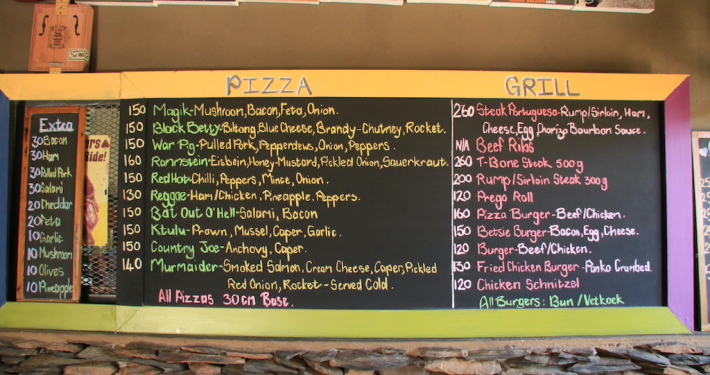 Extra
30 Bacon
30 Ham
30 Pulled Pork
30 Salami
20 Cheddar
20 Feta
10 Garlic
10 Mushroom
10 Olives
10 Pineapple
PIZZA
150 Magik-Mushroom, Bacon, Feta, Onion.
150 Black Betty-Biltong, Blue Cheese, Brandy-Chutney, Rocket.
150 War Pig-Pulled Pork, Pepperdews, Onion, Peppers.
160 Rammstein-Eisbein, Honey-Mustard, Pickled Onion, Sauerkraut.
150 Red Hot-Chilli, Peppers, Mince, Onion.
130 Reggae-Ham/Chicken, Pineapple, Peppers.
150 Bat Out O'Hell-Salami, Bacon
150 Ktulu-Prawn, Mussel, Caper, Garlic.
150 Country Joe-Anchovy, Caper.
140 Murmaider-Smoked Salmon, Cream Cheese, Caper, Pickled
Red Onion, Rocket-Served Cold.
All Pizzas 30cm Base.
GRILL
260 Steak Portuguesa-Rump/Sirloin, Ham,
Cheese, Egg, Chorizo Bourbon Sauce.
N/A Beef Ribs
260 T-Bone Steak 500g
200 Rump/Sirloin Steak 300g
120 Prego Roll
160 Pizza Burger-Beef/Chicken.
150 Betsie Burger-Bacon, Egg, Cheese.
120 Burger-Beef/Chicken.
150 Fried Chicken Burger-Panko Crumbed.
120 Chicken Schnitzel
All Burgers: Bun / Vetkoek